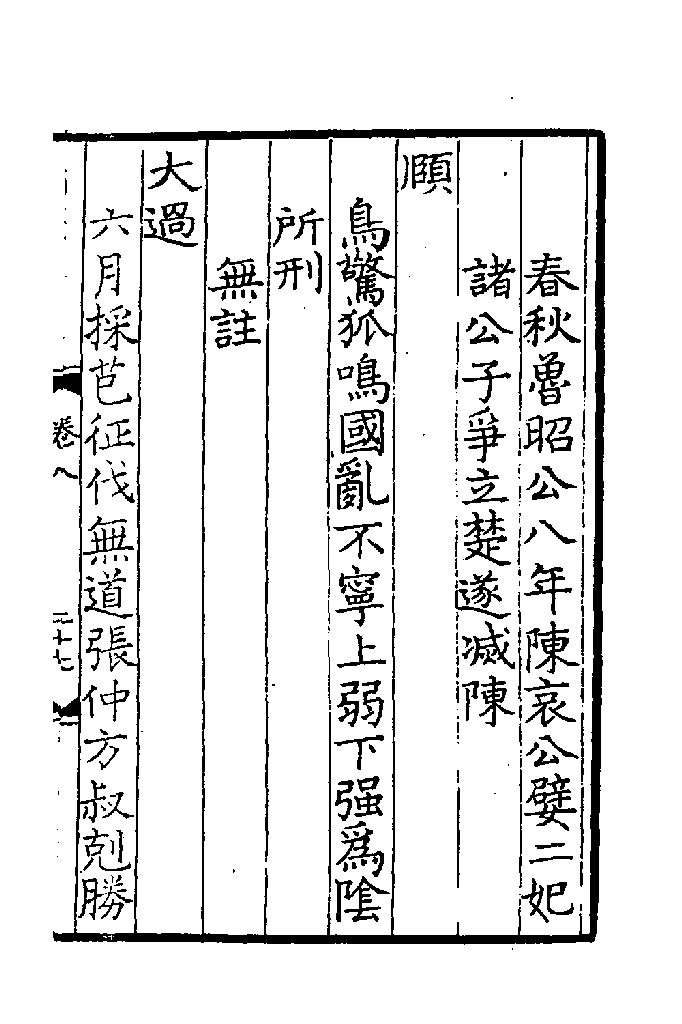 春秋魯昭公八年陳哀公嬖二妃
諸公子爭立楚遂滅陳
頤
鳥驚狐鳴國亂不寧上弱下强為陰
所刑
無註
大過
六月採芑征伐無道張仲方叔剋勝
卷八
二十七